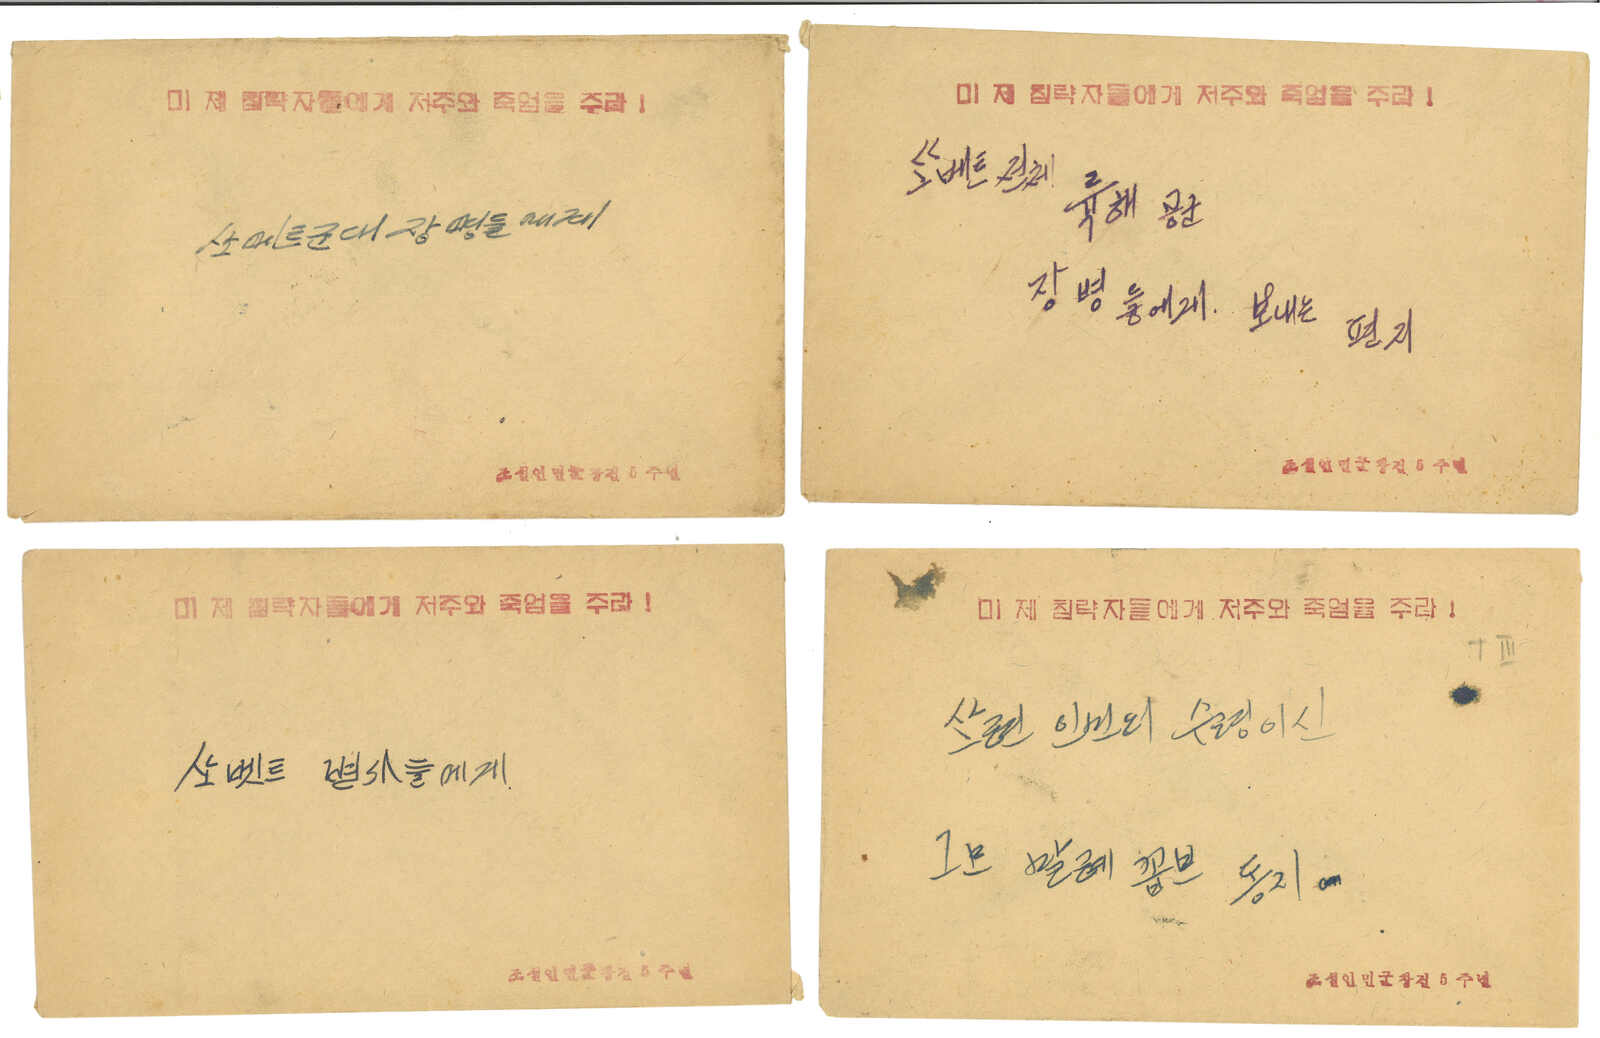 미 제 침략자들에게 저주와 죽엄을 주라 !
쏘베트군대 장병들에게
조선인민군창건 5 주년
미 제 침략자들에게 저주와 죽엄을 주라 !
쏘베트
육해 공군
장병들에게. 보내는 편지
조선인민군창건 5 주년
미 제 침략자들에게 저주와 죽엄을 주라 !
쏘벳트 전사들에게
조선인민군창건 5 주년
미 제 침략자들에게 저주와 죽엄을 주라 !
III
쏘련 인민의 수령이신
그.므 말렌꼬브 동지
조선인민군창건 5 주년